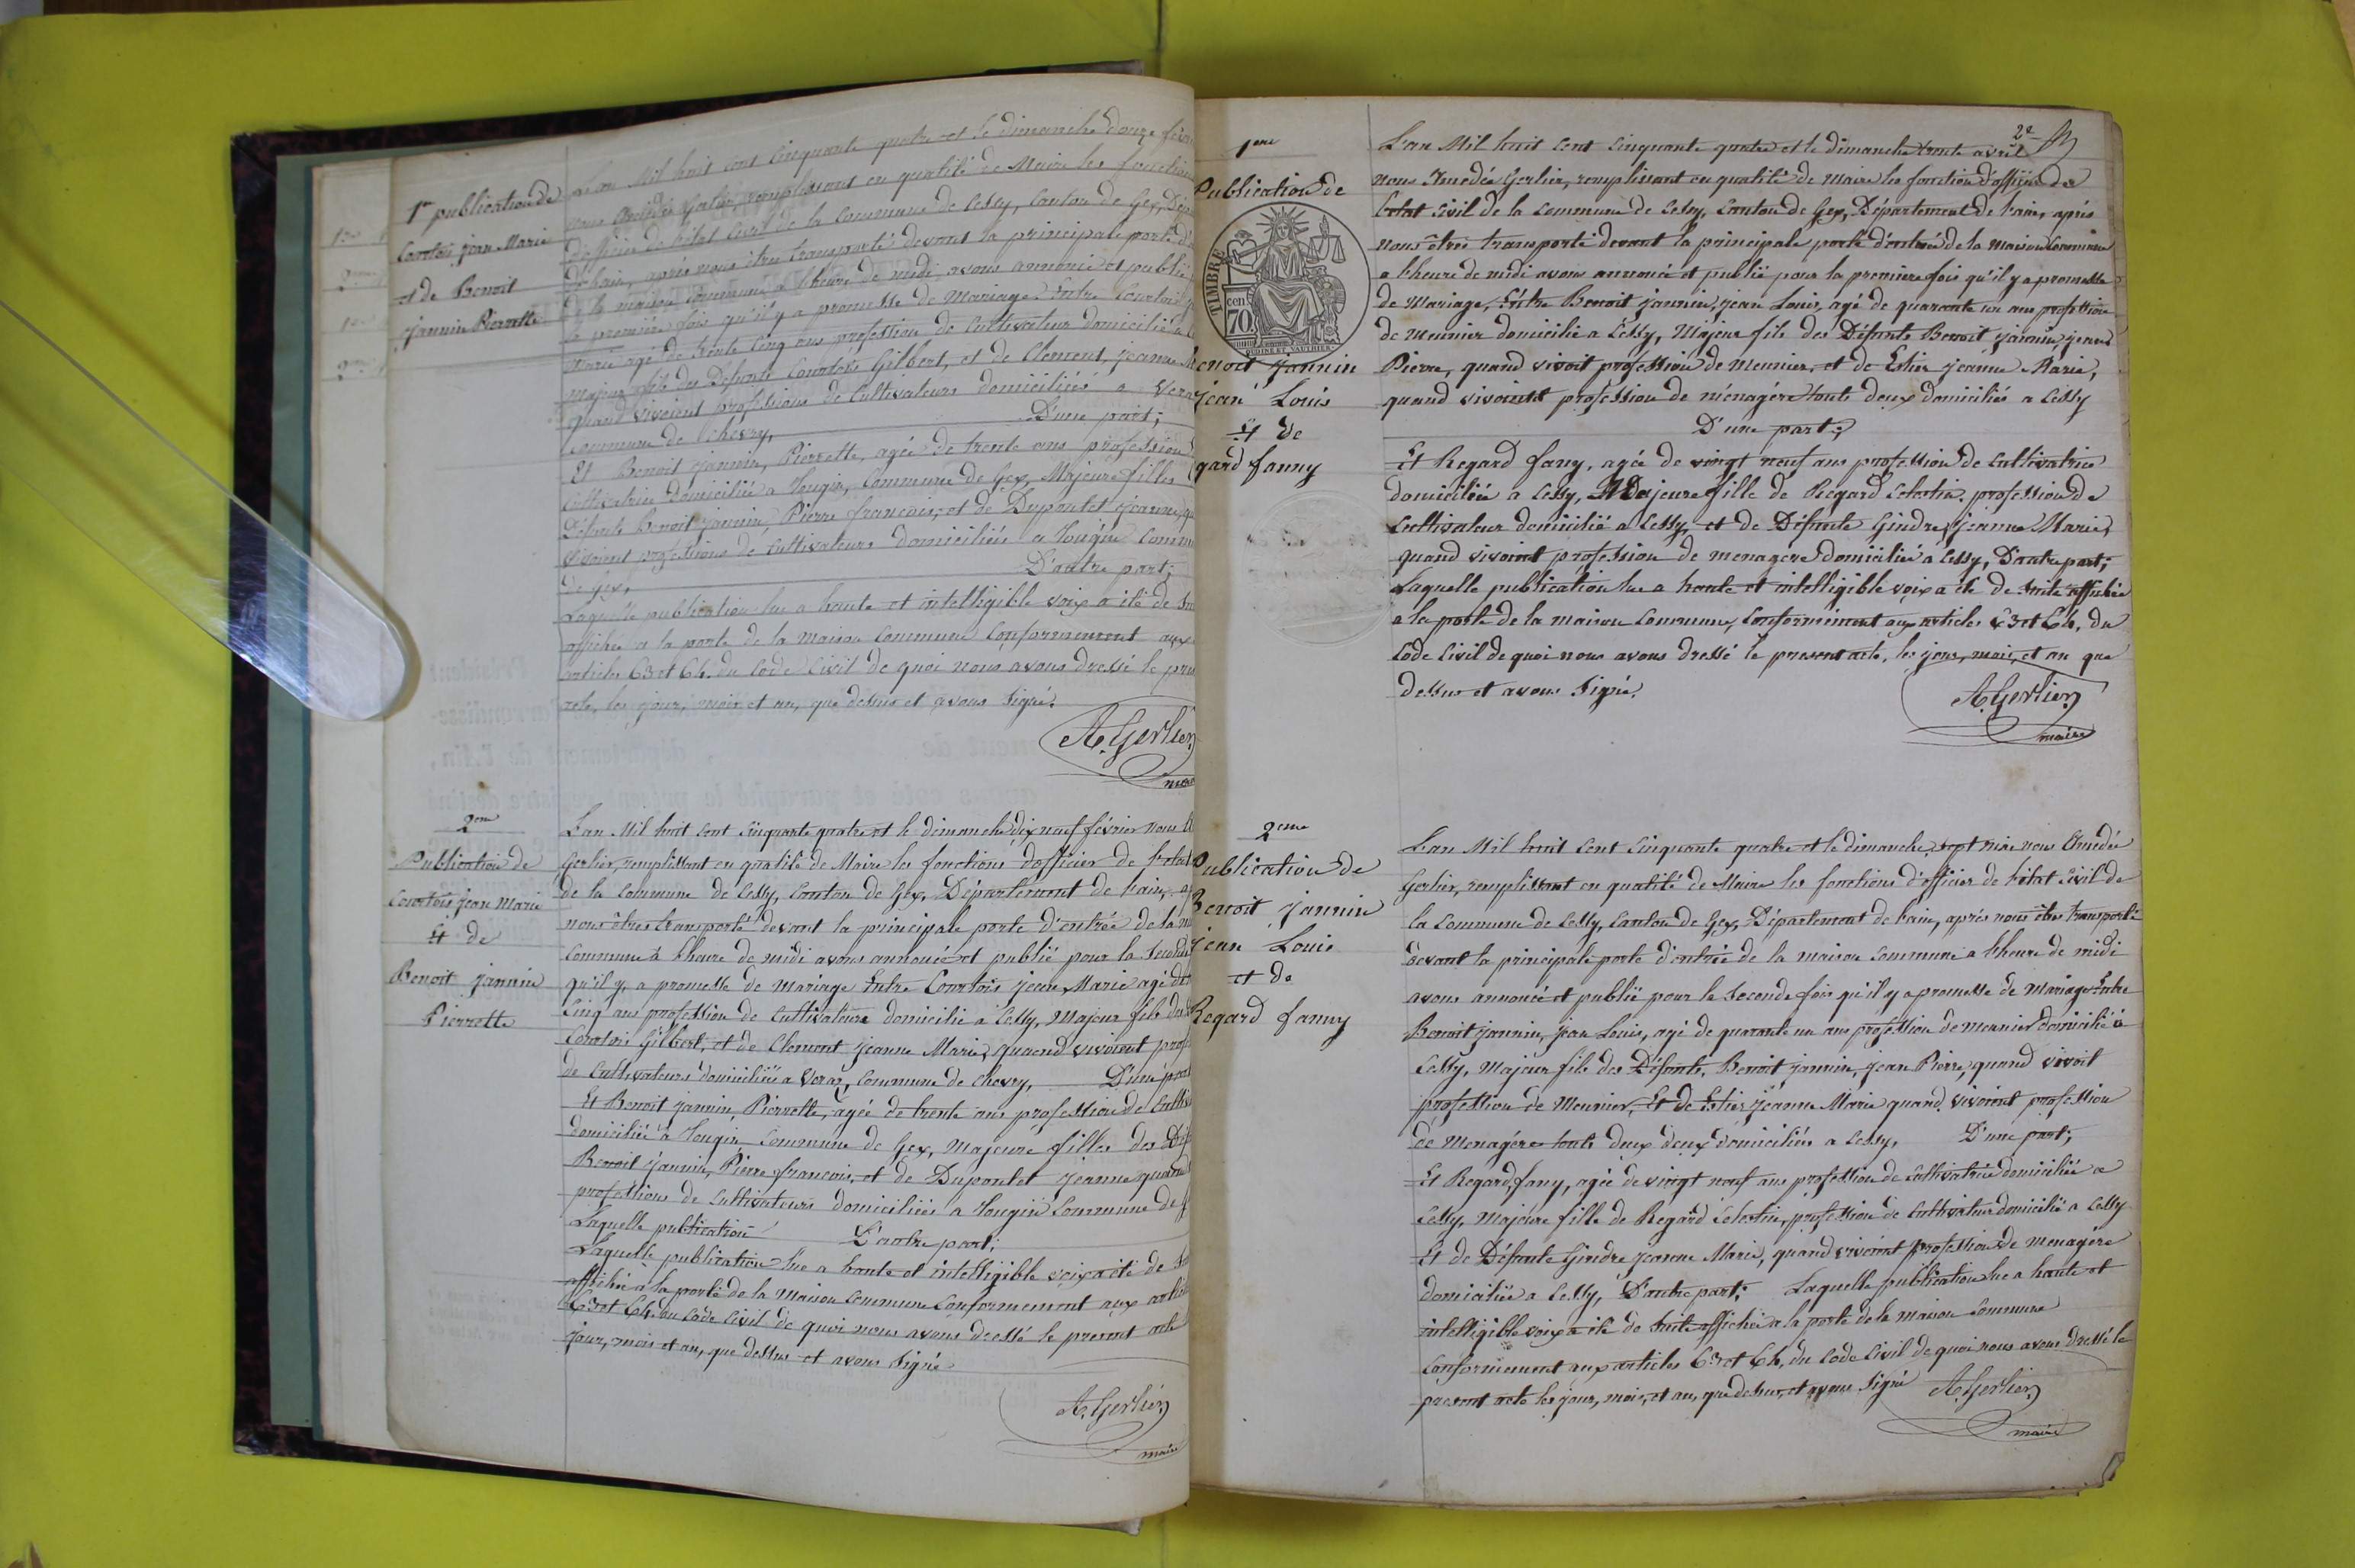 1re publication de
Courtois jean Marie
et de Benoit
jannin Pierrette
L'an Mil huit cent Cinquante quatre et le dimanche douze
nous Amédée Gerlier, remplissant en qualité de Maire les fonctions
d'officier de l'état Civil de la Commune de Cessy, Canton de Gex,
de l'ain, après nous être transporté devant la principale porte
de la maison Commune a l'heure de midi avons annoncé et publié
la première fois qu'il y a promesse de Mariage Entre Courtois
Marie agé de trente Cinq ans profession de Cultivateur domicilié a
majeur fils des Défunts Courtois Gilbert, et de Clement, jeanne
quand vivoient professions de Cultivateurs domiciliés a
Commune de Chévry, D'une part;
Et Benoit jannin, Pierrette, agée de trente ans profession
Cultivatrice domiciliée a Tougin, Commune de Gex, Majeure filles
Défunts Benoit jannin, Pierre francois, et de Dupontet jeanne,
vivoient professions de Cultivateurs domiciliés a Tougin
de Gex, D'autre part;
Laquelle publication lue a haute et intelligible voix a été de
affichée a la porte de la Maison Commune Conformement aux
articles 63 et 64. du Code Civil de quoi nous avons dressé le
acte, les jour, mois et an, que dessus et avons Signé.
A. Gerlier
2eme
Publication de
Courtois jean Marie
Et de
Benoit jannin
Pierrette
L'an Mil huit cent Cinquante quatre et le dimanche dix neuf février nous
Gerlier, remplissant en qualité de Maire les fonctions d'officier de l'etat
de la Commune de Cessy, Canton de Gex, Département de l'ain,
nous être transporté devant la principale porte d'entrée de la
Commune à l'heure de midi avons annoncé et publié pour la Seconde
qu'il y a promesse de mariage Entre Courtois jean, Marie agé de
Cinq ans profession de Cultivateur domicilié a Cessy, Majeur fils des
Courtois Gilbert, et de Clement jeanne Marie, quand vivoient
de Cultivateurs domiciliés a Veraz, Commune de Chevry, D'une part
Et Benoit jannin Pierrette, agée de trente ans profession de
domiciliée a Tougin Commune de Gex, Majeure filles des
Benoit jannin, Pierre francois, et de Dupontet jeanne quand
professions de Cultivateurs domiciliés a Tougin Commune de
Laquelle publication D'autre part;
Laquelle publication lue a haute et intelligible voix a été de
affichée a la porte de la Maison Commune Conformement aux
63 et 64. du Code Civil de quoi nous avons dressé le present acte
jour, mois et an, que dessus et avons Signé
A. Gerlier
maire
2e
1ere
Publication de
TIMBRE
cen
70.
Benoit Jannin
jean Louis
Et de
gard fanny
L'an Mil huit Cent Cinquante quatre et le dimanche trente avril
nous Amedée Gerlier, remplissant en qualité de Maire les fonction d'officier de
l'etat Civil de la Commune de Cessy, Canton de Gex, Département de l'ain, après
nous être transporté devant la principale porte d'entrée de la Maison Commune
a l'heure de midi avons annoncé et publié pour la premiere fois qu'il y a promesse
de Mariage, Entre Benoit jannin, jean Louis, agé de quarante un ans profession
de meunier domicilié a Cessy, Majeur fils des Défunts Benoit jannin, jean
Pierre, quand vivoit profession de Meunier, et de Estier jeanne Marie,
quand vivoient profession de ménagére touts deux domiciliés a Cessy
D'une part;
Et Regard fany, agée de vingt neuf ans profession de Cultivatrice
domiciliée a Cessy, Majeure fille de Regard Celestin, profession de
Cultivateur domicilié a Cessy, et de Défunte Gindre, jeanne Marie,
quand vivoient profession de menagere domicilié a Cessy, D'autre part;
Laquelle publication lue a haute et intelligible voix a été de Suite affichée
a la porte de la maison Commune, Conformément aux articles 63 et 64. du
Code Civil de quoi nous avons dressé le present acte, les jour, mois, et an que
dessus et avons Signé.
A. Gerlier
maire
2eme
Publication de
Benoit jannin
jean Louis
et de
Regard fanny
L'an Mil huit Cent Cinquante quatre et le dimanche, sept mai nous Amédée
Gerlier, remplissant en qualité de Maire les fonctions d'officier de l'état Civil de
la Commune de Cessy, Canton de Gex, Département de l'ain, après nous être transporté
devant la principale porte d'entrée de la maison Commune a l'heure de midi
avons annoncé et publié pour la Seconde fois qu'il y a promesse de Mariage Entre
Benoit jannin, jean Louis, agé de quarante un ans profession de meunier domicilié a
Cessy, Majeur fils des Défunts, Benoit jannin, jean Pierre, quand vivoit
profession de Meunier, Et de Estier jeanne Marie quand vivoient profession
de Menagére touts deux deux domiciliés a Cessy, D'une part;
Et Regard, fany, agée de vingt neuf ans profession de Cultivatrice domiciliée a
Cessy, Majeure fille de Regard Celestin, profession de Cultivateur domicilié a Cessy
Et de Défunte Gindre jeanne Marie, quand vivoient profession de menagére
domicilié a Cessy, D'autre part; Laquelle publication lue a haute et
intelligible voix a été de Suite affichée a la porte de la maison Commune
Conformement aux articles 63 et 64. du Code Civil de quoi nous avons dressé le
present acte les jour, mois, et an, que dessus, et avons Signé A. Gerlier
maire